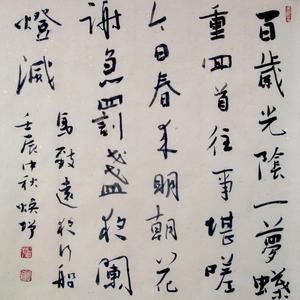 百歲光陰一夢蝶
重回首往事堪嗟
今日春來明朝花
謝急罰盞夜闌
燈滅
馬致遠夜行船
壬辰中秋